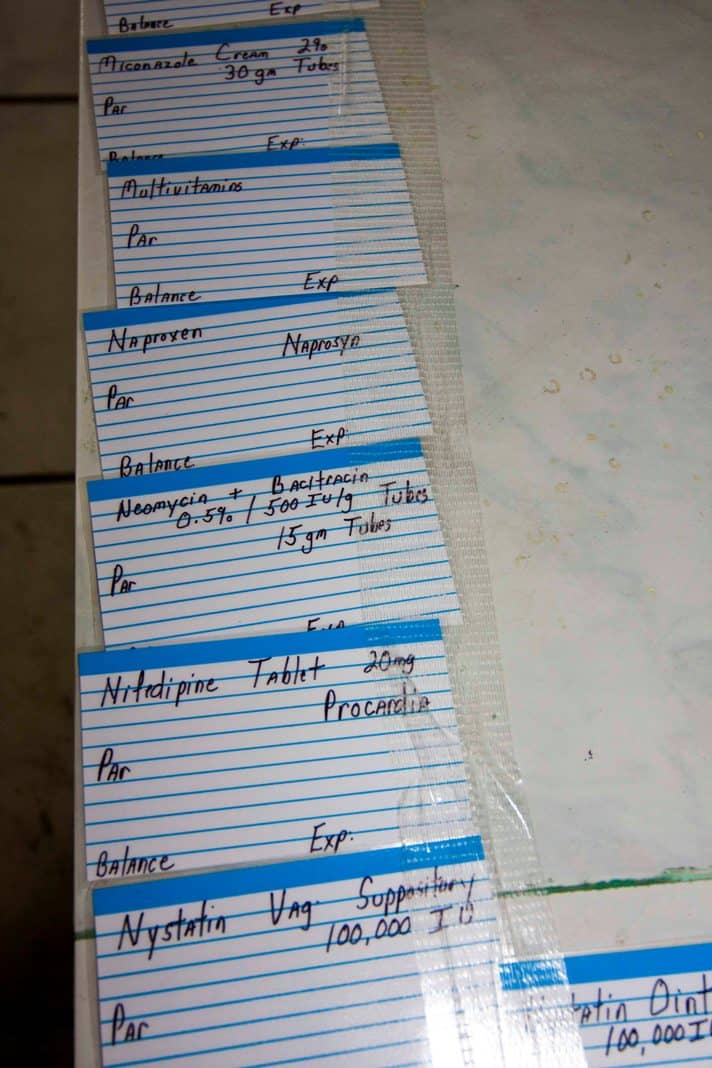 Balance Exp
Miconazole Cream 2%
30 gm Tubes
Par
Balance Exp:
Multivitamins
Par
Balance Exp
Naproxen Naprosyn
Par
Balance Exp:
Neomycin + Bacitracin
0.5% / 500 IU/g Tubes
15 gm Tubes
Par
Exp
Nifedipine Tablet 20mg
Procardia
Par
Balance Exp:
Nystatin Vag. Suppository
100,000 IU
Par
Oint
100,000 I